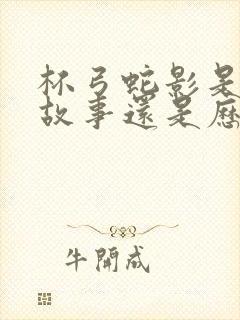 杯弓蛇影是
故事還是歷
牛開成